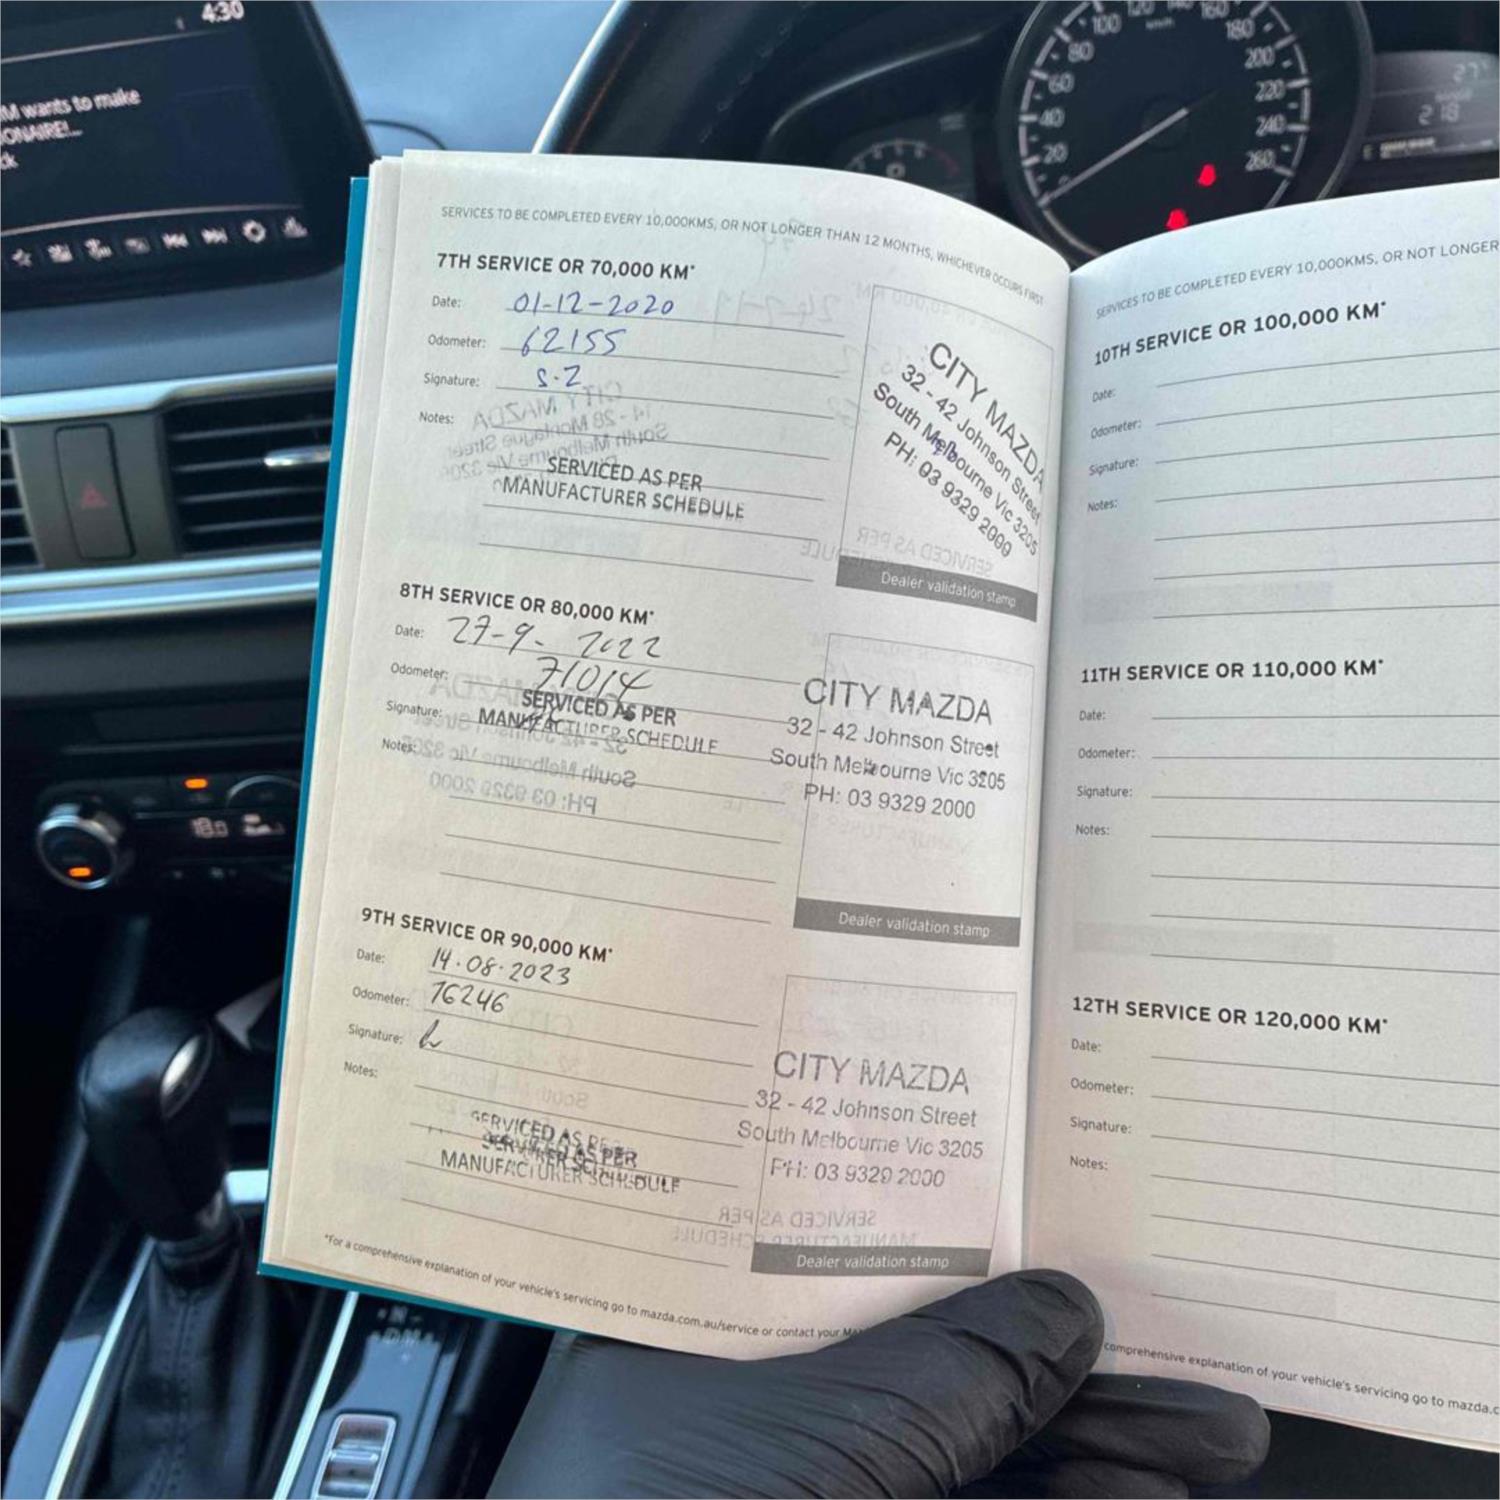 4:30
M wants to make
ONAIRE!...
ck
20
40
60
80
100
120
140
160
180
200
220
240
260
km/h
218
E
18.0
SERVICES TO BE COMPLETED EVERY 10,000KMS, OR NOT LONGER THAN 12 MONTHS, WHICHEVER OCCURS FIRST
7TH SERVICE OR 70,000 KM*
Date: 01-12-2020
Odometer: 62155
Signature: S.Z
Notes:
SERVICED AS PER
MANUFACTURER SCHEDULE
CITY MAZDA
32 - 42 Johnson Street
South Melbourne Vic 3205
PH: 03 9329 2000
Dealer validation stamp
8TH SERVICE OR 80,000 KM*
Date: 27-9-2022
Odometer: 71014
Signature:
Notes:
SERVICED AS PER
MANUFACTURER SCHEDULE
CITY MAZDA
32 - 42 Johnson Street
South Melbourne Vic 3205
PH: 03 9329 2000
Dealer validation stamp
9TH SERVICE OR 90,000 KM*
Date: 14.08.2023
Odometer: 76246
Signature:
Notes:
SERVICED AS PER
SERVICED AS PER
MANUFACTURER SCHEDULE
CITY MAZDA
32 - 42 Johnson Street
South Melbourne Vic 3205
PH: 03 9329 2000
Dealer validation stamp
*For a comprehensive explanation of your vehicle's servicing go to mazda.com.au/service or contact your
SERVICES TO BE COMPLETED EVERY 10,000KMS, OR NOT LONGER
10TH SERVICE OR 100,000 KM*
Date:
Odometer:
Signature:
Notes:
11TH SERVICE OR 110,000 KM*
Date:
Odometer:
Signature:
Notes:
12TH SERVICE OR 120,000 KM*
Date:
Odometer:
Signature:
Notes:
comprehensive explanation of your vehicle's servicing go to mazda.c